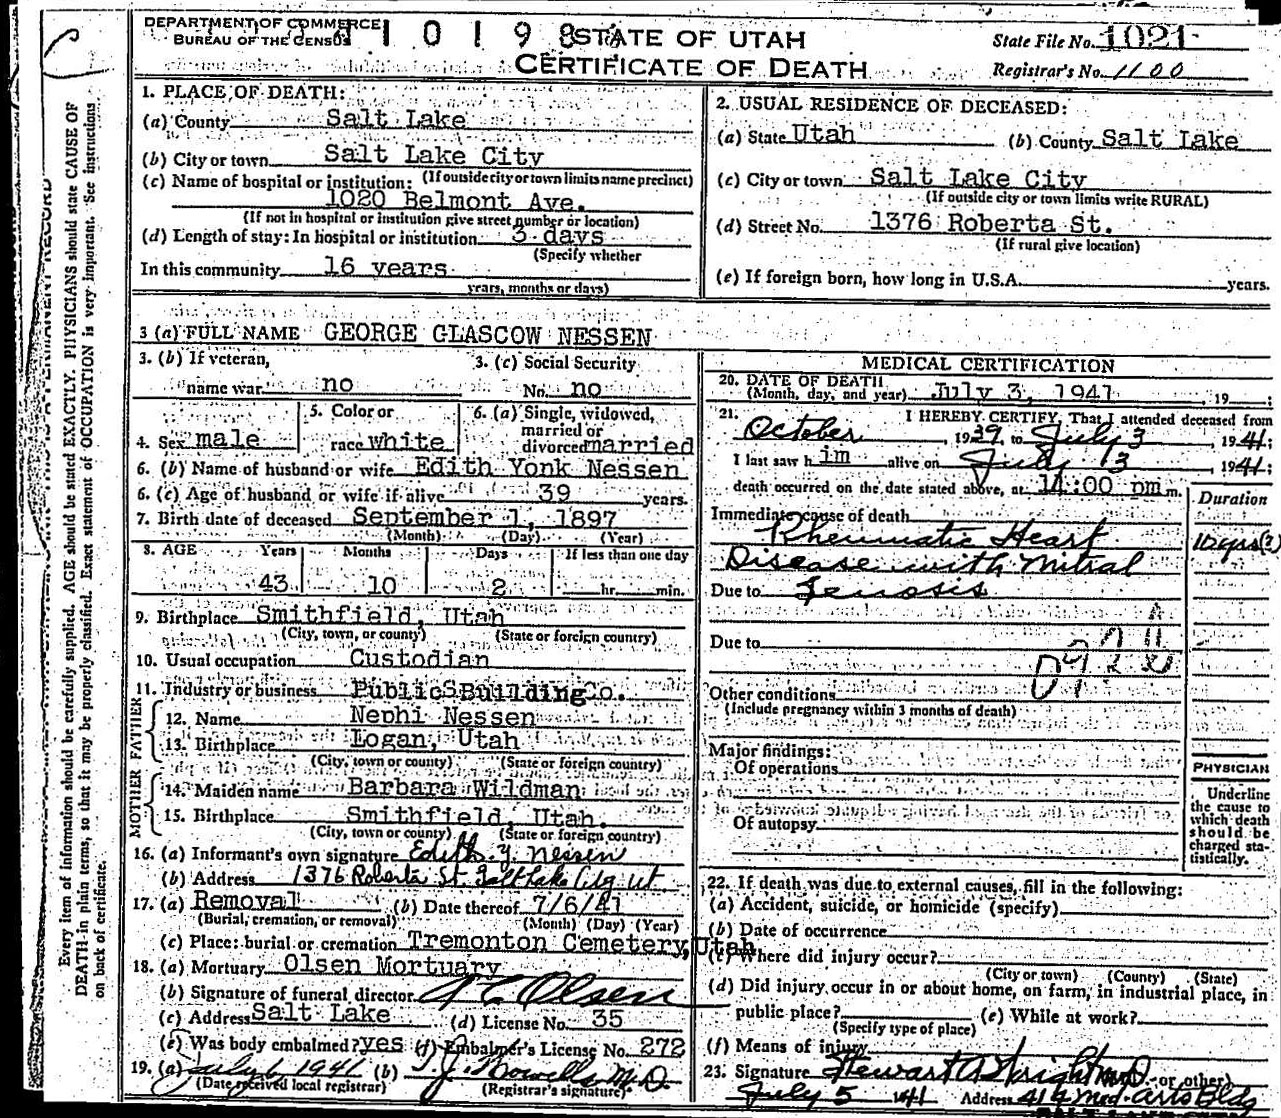 DEPARTMENT OF COMMERCE
BUREAU OF THE CENSUS
STATE OF UTAH
CERTIFICATE OF DEATH
State File No. 1021
Registrar's No. 1100
Every item of information should be carefully supplied. AGE should be stated EXACTLY. PHYSICIANS should state CAUSE OF
DEATH in plain terms, so that it may be properly classified. Exact statement of OCCUPATION is very important. See instructions
on back of certificate.
1. PLACE OF DEATH:
(a) County Salt Lake
(b) City or town Salt Lake City
(If outside city or town limits name precinct)
(c) Name of hospital or institution:
1020 Belmont Ave.
(If not in hospital or institution give street number or location)
(d) Length of stay: In hospital or institution 3 days
(Specify whether
In this community 16 years
years, months or days)
2. USUAL RESIDENCE OF DECEASED:
(a) State Utah (b) County Salt Lake
(c) City or town Salt Lake City
(If outside city or town limits write RURAL)
(d) Street No. 1376 Roberta St.
(If rural give location)
(e) If foreign born, how long in U.S.A. years.
3 (a) FULL NAME GEORGE GLASCOW NESSEN
3. (b) If veteran,
name war no
3. (c) Social Security
No. no
4. Sex male
5. Color or
race white
6. (a) Single, widowed,
married or
divorced married
6. (b) Name of husband or wife Edith Yonk Nessen
6. (c) Age of husband or wife if alive 39 years.
7. Birth date of deceased September 1, 1897
(Month) (Day) (Year)
8. AGE Years Months Days If less than one day
43 10 2 hr. min.
9. Birthplace Smithfield, Utah
(City, town, or county) (State or foreign country)
10. Usual occupation Custodian
11. Industry or business Public S Building Co.
FATHER
12. Name Nephi Nessen
13. Birthplace Logan, Utah
(City, town or county) (State or foreign country)
MOTHER
14. Maiden name Barbara Wildman
15. Birthplace Smithfield, Utah.
(City, town or county) (State or foreign country)
16. (a) Informant's own signature Edith Y. Nessen
(b) Address 1376 Roberta St. Salt Lake City Ut
17. (a) Removal (b) Date thereof 7/6/41
(Burial, cremation, or removal) (Month) (Day) (Year)
(c) Place: burial or cremation Tremonton Cemetery, Utah
18. (a) Mortuary Olsen Mortuary
(b) Signature of funeral director Olsen
(c) Address Salt Lake (d) License No. 35
(e) Was body embalmed? yes (f) Embalmer's License No. 272
19. (a) July 6, 1941 (b) T. J. Howells M.D.
(Date received local registrar) (Registrar's signature)
MEDICAL CERTIFICATION
20. DATE OF DEATH
(Month, day, and year) July 3, 1941, 19 ;
21. I HEREBY CERTIFY, That I attended deceased from
October, 1939, to July 3, 1941;
I last saw h im alive on July 3, 1941;
death occurred on the date stated above, at 11:00 pm m.
Duration
Immediate cause of death
Rheumatic Heart 10 yrs (?)
Disease with mitral
Due to Stenosis
Due to
Other conditions
(Include pregnancy within 3 months of death)
Major findings:
Of operations
Of autopsy
PHYSICIAN
Underline
the cause to
which death
should be
charged sta-
tistically.
22. If death was due to external causes, fill in the following:
(a) Accident, suicide, or homicide (specify)
(b) Date of occurrence
(c) Where did injury occur?
(City or town) (County) (State)
(d) Did injury occur in or about home, on farm, in industrial place, in
public place? (e) While at work?
(Specify type of place)
(f) Means of injury
23. Signature Stewart A Wright M.D. or other)
July 5 1941 Address 414 Med. Arts Bldg